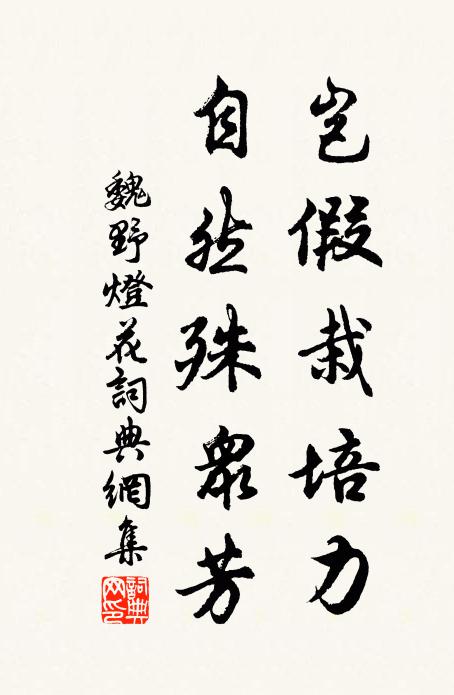 豈假栽培力
自然殊眾芳
魏野燈花詞典網集
詞典网印